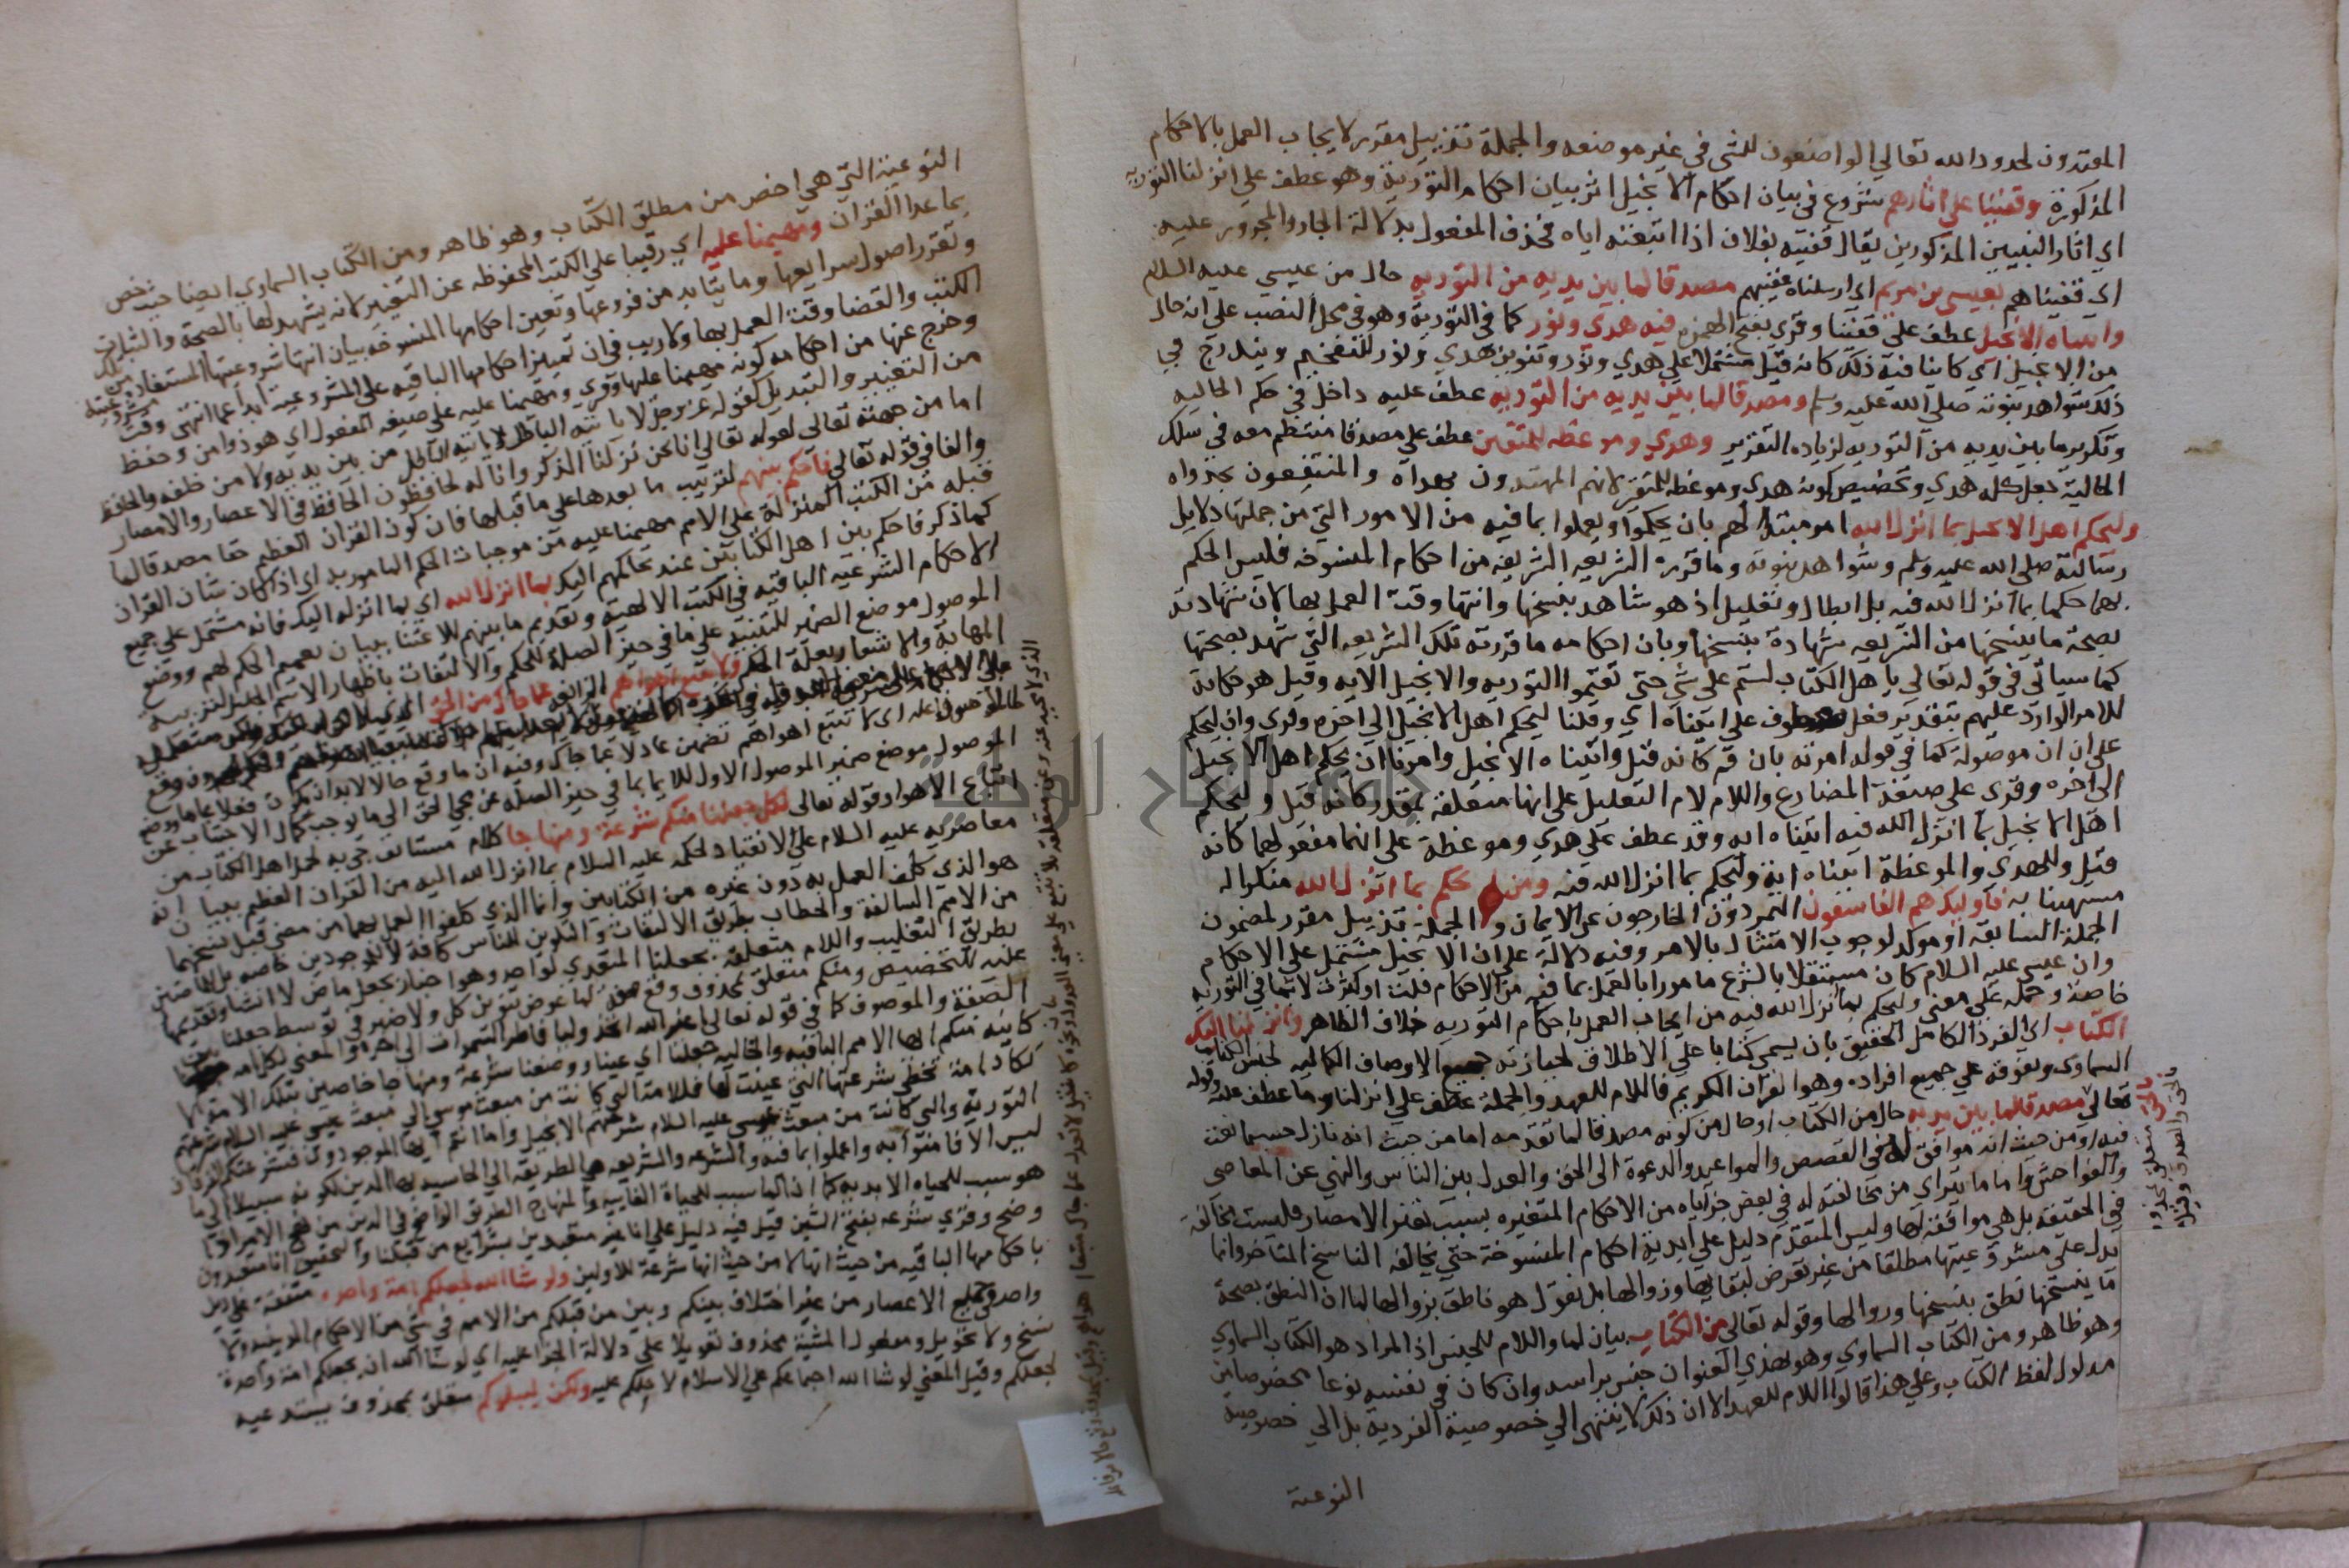 المعتدون لحدود الله تعالى الواضعون للشي في غير موضعه والجملة تذييل مقرر لايجاب العمل بالاحكام
المذكورة وقفينا على اثارهم شروع في بيان احكام الانجيل اثر بيان احكام التورية وهو عطف على انزلنا التوريه
اي اثار النبيين المذكورين يقال قفيته بفلان اذا اتبعته اياه فحذف المفعول بدلالة الجار والمجرور عليه
اي قفيناهم بعيسى بن مريم اي ارسلناه عقيبهم مصدقا لما بين يديه من التوريه حال من عيسي عليه السلام
واتيناه الانجيل عطف على قفينا وقري بفتح الهمزه فيه هدى ونور كما في التورية وهو في محل النصب على انه حال
من الانجيل اي كاينا فيه ذلك كانه قيل مشتملا على هدي ونور وتنوين هدي ونور للتفخيم ويندرج في
ذلك شواهد نبوته صلى الله عليه وسلم ومصدقا لما بين يديه من التوريه عطف عليه داخل في حكم الحاليه
وتكرير ما بين يديه من التوريه لزياده التقرير وهدي وموعظه للمتقين عطف على مصدقا منتظم معه في سلك
الحالية جعل كله هدي وتخصيص كونه هدي وموعظه للمتقين لانهم المهتدون بهداه والمنتفعون بجدواه
وليحكم اهل الانجيل بما انزل الله امر مبتدا لهم بان يحكموا ويعملوا بما فيه من الامور التي من جملتها دلايل
رسالته صلى الله عليه وسلم وشواهد نبوته وما قررته الشريعه الشريفه من احكام المنسوخه فليس الحكم
بهما حكما بما انزل الله فيه بل ابطال وتعطيل اذ هو شاهد بنسخها وانتها وقت العمل بها لان شهادته
بصحة ما ينسخها من الشريعه شهادة بنسخها وبان احكامه ما قررته تلك الشريعه التي شهد بصحتها
كما سياتي في قوله تعالي يا هل الكتاب لستم على شي حتي تقيموا التوريه والانجيل الايه وقيل هو حكاية
للامر الوارد عليهم بتقدير فعل معطوف على اتيناه اي وقلنا ليحكم اهل الانجيل الي اخره وقري وان ليحكم
على ان ان موصولة كما في قولك امرته بان قم كانه قيل واتيناه الانجيل وامرنا ان يحكم اهل الانجيل
الى اخره وقرى على صيغة المضارع واللام لام التعليل على انها متعلقة بمقدر كانه قيل وليحكم
اهل الانجيل بما انزل الله فيه اتيناه ايه وقد عطف على هدي وموعظة على انهما مفعول لهما كانه
قيل وللهدي والموعظة اتيناه اية وليحكم بما انزل الله فيه ومن لم يحكم بما انزل الله منكرا له
مستهينا به فاوليك هم الفاسقون المتمردون الخارجون عن الايمان والجملة تذييل مقرر لمضمون
الجملة السابقه او موكد لوجوب الامتثال بالامر وفيه دلالة على ان الانجيل مشتمل علي الاحكام
وان عيسي عليه السلام كان مستقلا بالشرع مامورا بالعمل بما فيه من الاحكام قلت او كثرت لا بما في التوريه
خاصة وحمله على معنى وليحكم بما انزل الله فيه من ايجاب العمل باحكام التوريه خلاف الظاهر وانزلنا اليك
الكتاب اي الفرد الكامل الحقيق بان يسمى كتابا علي الاطلاق لحيازته جميع الاوصاف الكماليه لجنس الكتاب
السماوي وتفوقه علي جميع افراده وهو القران الكريم فاللام للعهد والجملة عطف علي انزلنا وما عطف عليه وقوله
تعالي مصدقا لما بين يديه حال من الكتاب اي حال من كونه مصدقا لما تقدمه اما من حيث انه نازل حسبما نعت
فيه او من حيث انه موافق له في القصص والمواعيد والدعوة الى الحق والعدل بين الناس والنهي عن المعاصي
والفواحش واما ما يتراي من مخالفته له في بعض جزئياته من الاحكام المتغيره بسبب تغير الاعصار فليست مخالفة
في الحقيقه بل هي موافقة لها وليس المتقدم دليل علي ابدية احكام المنسوخة حتي يخالفه الناسخ المتاخر وانما
يدل على مشروعيتها مطلقا من غير تعرض لبقايها وزوالها بل نقول هو ناطق بزوالها لما ان النطق بصحة
ما ينسخها نطق بنسخها وزوالها وقوله تعالي من الكتاب بيان لما واللام للجنس اذ المراد هو الكتاب السماوي
وهو ظاهر ومن الكتاب السماوي وهو بهذي العنوان جنس براسه وان كان في نفسه نوعا مخصوصا من
مدلول لفظ الكتاب وعلي هذا قالوا اللام للعهد الا ان ذلك لا ينتهي الي خصوصية الفردية بل الي خصوصية
النوعية
النوعية التي هي اخص من مطلق الكتاب وهو ظاهر ومن الكتاب السماوي ايضا حيث خص
بما عدا القران ومهيمنا عليه اي رقيبا علي الكتب المحفوظه عن التغيير لانه يشهد لها بالصحة والثبات
وتقرر اصول شرايعها وما يتابد من فروعها وتعين احكامها المنسوخه ببيان انتها مشروعيتها المستفاد من تلك
الكتب وانقضا وقت العمل بها ولا ريب في ان تمييز احكامها الباقيه على المشروعية ابدا عما انتهى وقت مشروعيته
وخرج عنها من احكامه كونه مهيمنا عليها وقري ومهيمنا عليه على صيغه المفعول اي هوذوا من وحفظ
من التغيير والتبديل كقوله عز وجل لا ياتيه الباطل من بين يديه ولا من خلفه والحافظ
اما من جهته تعالى كقوله تعالي انا نحن نزلنا الذكر وانا له لحافظون او الحافظ في الاعصار والامصار
والفا في قوله تعالي فاحكم بينهم لترتيب ما بعدها على ما قبلها فان كون القران العظيم حقا مصدقا لما
قبله من الكتب المنزلة على الامم مهيمنا عليه من موجبات الحكم المامور به اي اذا كان شان القران
كما ذكر فاحكم بين اهل الكتابين عند تحاكمهم اليك بما انزل الله اي بما انزله اليك فانه مشتمل علي جميع
الاحكام الشرعيه الباقيه في الكتب الالهية وتقديم بينهم للاعتنا ببيان تعميم الحكم لهم ووضع
الموصول موضع الضمير للتنبيه علي ما في حيز الصلة للحكم والالتفات باظهار الاسم الجليل لتربية
المهابة والاشعار بعلة الحكم ولا تتبع اهواهم الزائغة عما جاك من الحق
اي لا تتبع اهواهم تضمن عادلا عما جاك وفيه ان ما وقع حالا لابد ان يكون فعلا عاما ووضع
الموصول موضع ضمير الموصول الاول للايما بما في حيز الصله من مجي الحق الى ما يوجب كمال الاجتناب عن
اتباع الاهوا وقوله تعالى لكل جعلنا منكم شرعة ومنهاجا كلام مستانف جي به لحمل اهل الكتاب من
معاصريه عليه السلام علي الانقياد لحكمه عليه السلام بما انزل الله اليه من القران العظيم ببيان انه
هو الذي كلفوا العمل به دون غيره من الكتابين وانما الذي كلفوا العمل بهما من مضي قبل نسخهما
من الامم السالفة والخطاب بطريق الالتفات والتلوين للناس كافة لا للموجودين خاصه بل للماضين
بطريق التغليب واللام متعلقة بجعلنا المتعدي لواحد وهو اخبار بجعل ماض لا انشا وتقديمها
عليه للتخصيص ومنكم متعلق بمحذوف وقع صفة لما عوض تنوين كل ولا ضير في توسط جعلنا بين
الصفة والموصوف كما في قوله تعالي اغير الله اتخذ وليا فاطر السموات الي اخره والمعني لكل امه
كاينة منكم ايها الامم الباقيه والخاليه جعلنا اي عينا ووضعنا شرعة ومنهاجا خاصين بتلك الامة لا
تكاد امة تتخطي شرعتها التي عينت لها فالامة التي كانت من مبعث موسي الي مبعث عيسي عليه السلام شرعتهم
التوريه والتي كانت من مبعث عيسى عليه السلام شرعتهم الانجيل واما انتم ايها الموجودون فشرعتكم الفرقان
ليس الا فامنوا به واعملوا بما فيه والشرعه والشريعه هي الطريقه الي الما شبه بها الدين لكونه سبيلا الي ما
هو سبب للحياه الابديه كما ان الما سبب للحياة الفانيه والمنهاج الطريق الواضح في الدين من نهج الامر اذا
وضح وقري شرعه بفتح الشين قيل فيه دليل علي انا غير متعبدين بشرايع من قبلنا والتحقيق انا متعبدون
باحكامها الباقيه من حيث انها لا من حيث انها شرعة للاولين ولو شا الله لجعلكم امة واحدة متفقة علي دين
واحد في جميع الاعصار من غير اختلاف بينكم وبين من قبلكم من الامم في شي من الاحكام الدينيه ولا
نسخ ولا تحويل ومفعول المشية محذوف تعويلا علي دلالة الجزا عليه اي لو شا الله ان يجعلكم امة واحدة
لجعلكم وقيل المعني لو شا الله اجتماعكم علي الاسلام لاجبركم عليه ولكن ليبلوكم متعلق بمحذوف يستدعيه
جامعة النجاح الوطنية